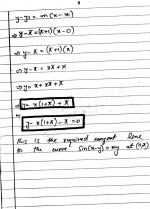 y-y₁ = m(x-x₁)
⇒ y-π = (π+1)(x-0)
⇒ y-π = (π+1)(x)
⇒ y-π = xπ+x
⇒ y = x+xπ+π
⇒ y = x(1+π)+π
or
y-x(1+π)-π=0
This is the required tangent line
to the curve sin(x-y)=xy at (0,π)